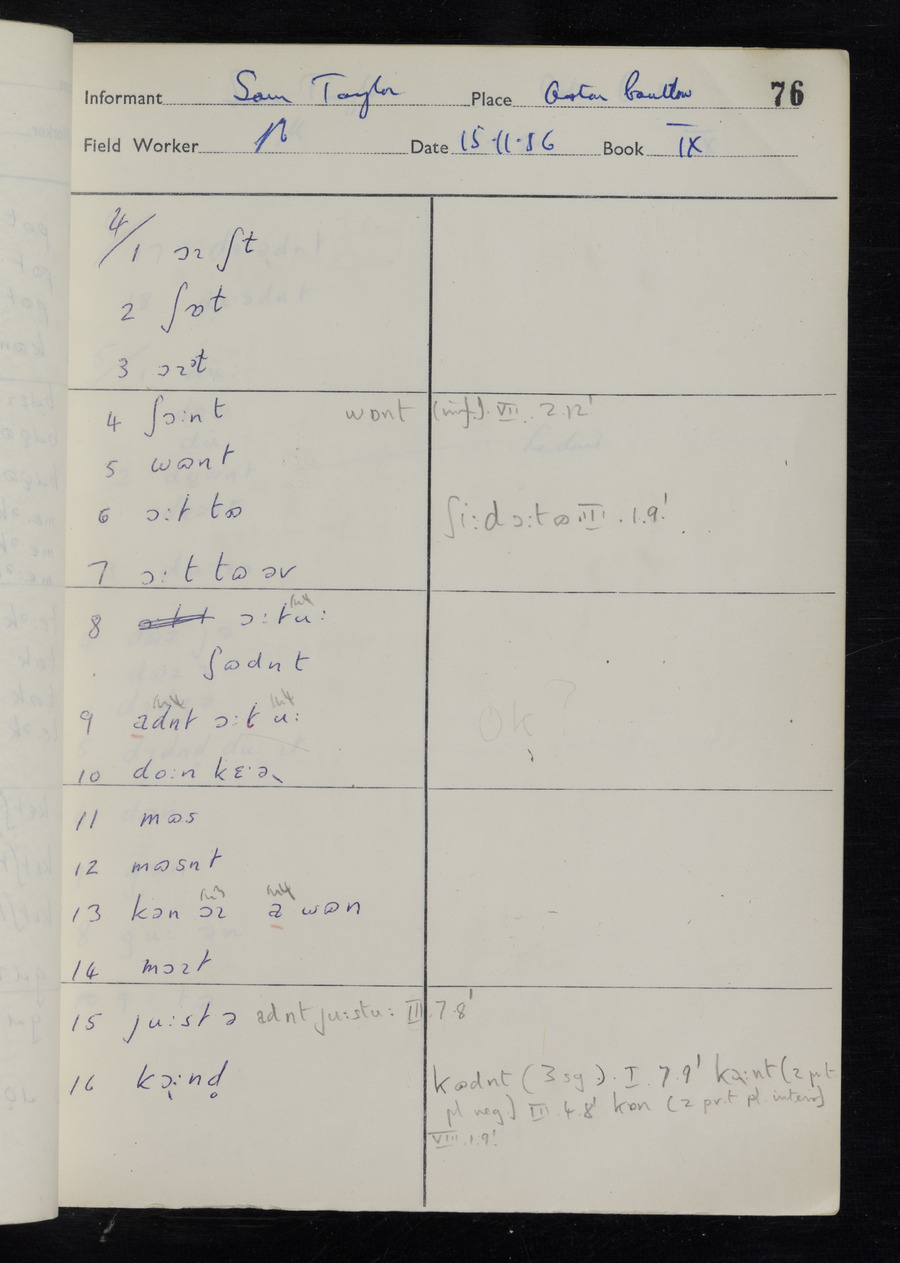 Informant Sam Taylor Place 76
Field Worker Date 15.11.56 Book IX
4/1 ɔɪ ʃt
2 ʃɒt
3 ɔɪət
4 ʃɔ:nt wɒnt (inf.). VII. 2.12'
5 wɒnt
6 ɔ:t tɷ ʃi:d ɔ:tɷ III. 1.9'
7 ɔ:t tɷ əv
8 ɔ:tu:
ʃɷdnt
9 adnt ɔ:t u: Ok?
10 do:n kɛ:ə
11 mɷs
12 mɷsnt
13 kən ɔɪ a wɒn
14 mɔɪt
15 ju:stə adnt ju:stu: III 7.8'
16 kɔ:nd kɷdnt (3 sg.). I. 7.9' kɔ:nt (2 prt.
pl neg) III. 4.8' kən (2 prt pl. interr)
VIII. 1.9'